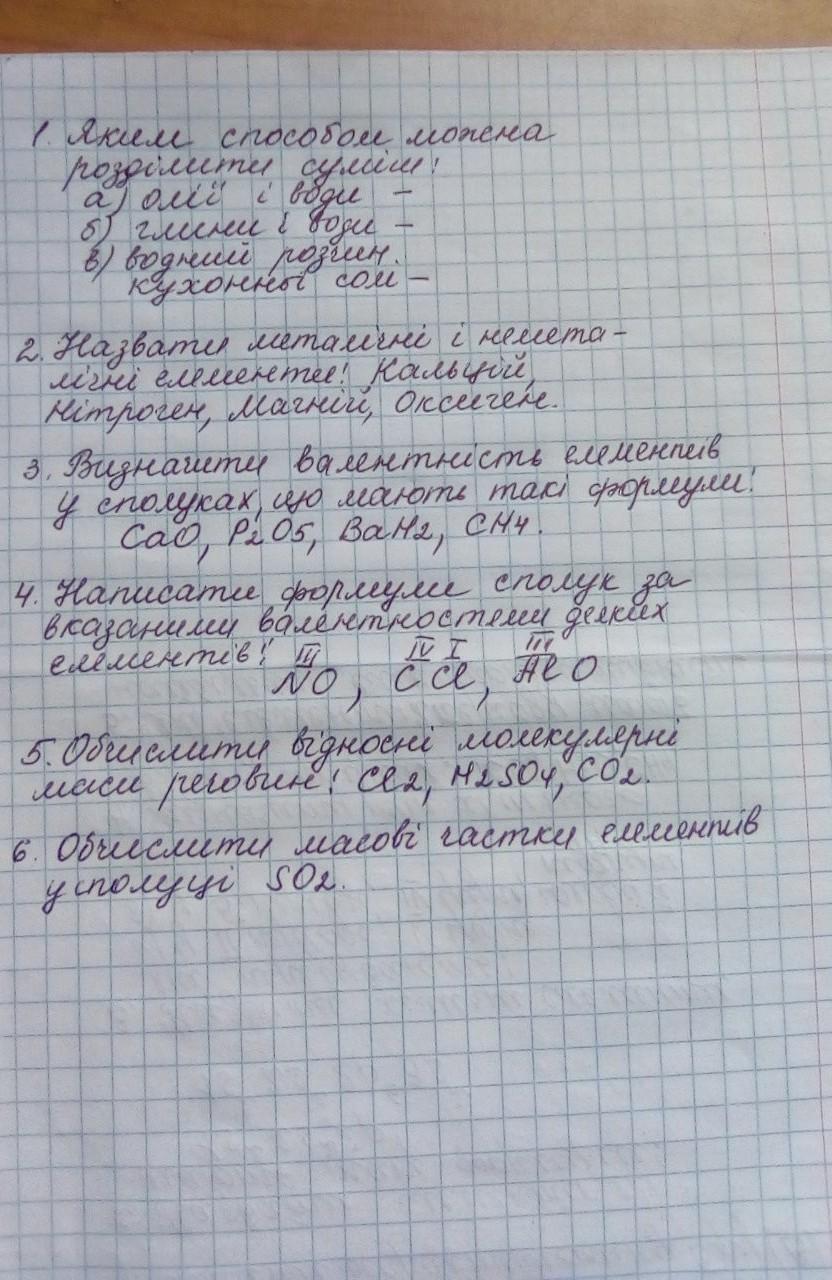 1. Яким способом можна
розділити суміш:
а) олії і води –
б) глини і води –
в) водний розчин.
кухонної солі –
2. Назвати металічні і немета-
лічні елементи: Кальцій,
Нітроген, Магній, Оксиген.
3. Визначити валентність елементів
у сполуках, що мають такі формули:
CaO, P2O5, BaH2, CH4.
4. Написати формули сполук за
вказаними валентностями деяких
елементів:
III IV I III
NO, CCl, AlO
5. Обчислити відносні молекулярні
маси речовин: Cl2, H2SO4, CO2.
6. Обчислити масові частки елементів
у сполуці SO2.